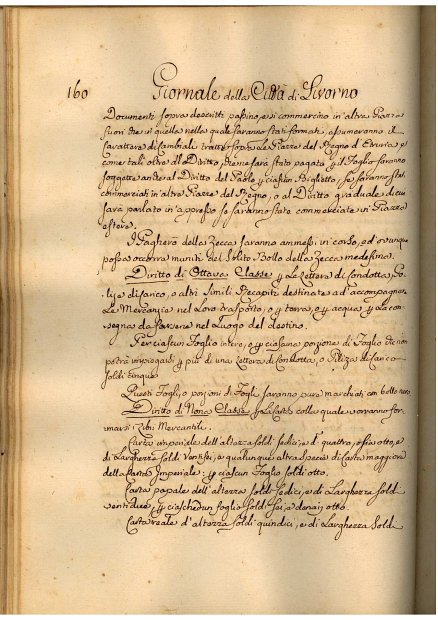 160 Giornale della Città di Livorno
Documenti sopra descritti passino, e si commercino in altre Piazze
fuori che in quella nella quale saranno stati formati, assumeranno il
Carattere di Cambiali tratte sopra le Piazze del Regno d'Etruria, e
come tali oltre al Diritto, che ne sarà stato pagato il Foglio saranno
soggette anche al Diritto del Paolo ciascun Biglietto, se saranno stati
commerciati in altra Piazza del Regno, o al Diritto graduale di cui
sarà parlato in appresso se saranno state commerciate in Piazza
estera.
I Pagherò della Zecca saranno ammessi in corso, ed ovunque
possa occorrere muniti del solito Bollo della Zecca medesima.
Diritto di Ottava Classe Le Lettere di Condotta, Po-
lizze di Carico, o altri simili Recapiti destinate ad accompagnare
Le Mercanzie nel loro trasporto, o terra, o acqua, la con-
segna da farsene nel Luogo del destino.
Per ciascun Foglio intero, o ciascuna porzione di Foglio che non
potrà impiegarsi più di una Lettera di Condotta, o Polizza di Carico
soldi cinque
Questi Fogli, o porzioni di Fogli saranno pure marchiati con bollo nero
Diritto di Nona Classe La Carta colla quale vorranno for-
marsi Libri Mercantili.
Carta imperiale dell'altezza soldi sedici, e d. quattro, o sia otto, e
di Larghezza soldi Ventisei, e qualunque altra specie di Carta maggiore
della Carta Imperiale: ciascun Foglio soldi otto.
Carta papale dell'altezza soldi sedici, e di Larghezza soldi
ventidue, ciaschedun foglio soldi sei, e danari otto.
Carta reale d'altezza soldi quindici, e di Larghezza soldi